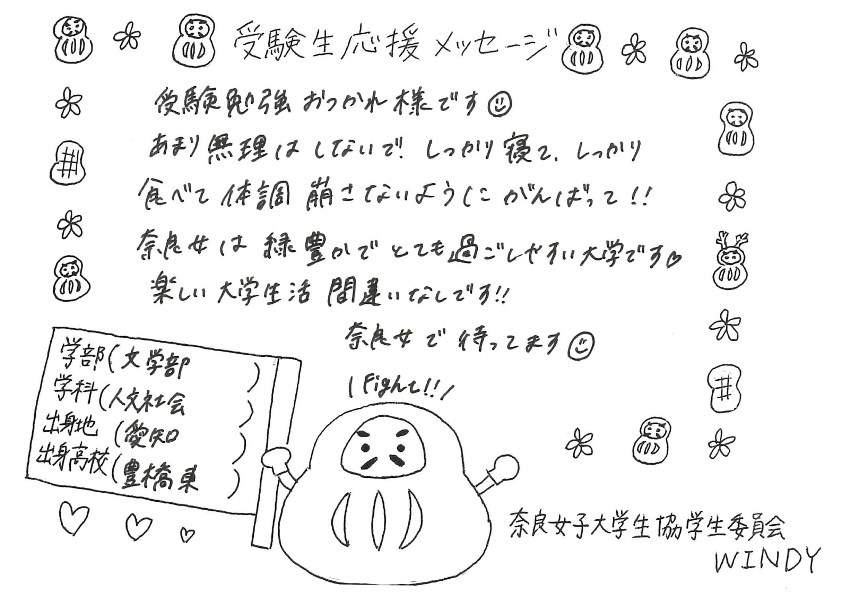 受験生応援メッセージ
受験勉強おつかれ様です
あまり無理はしないで、しっかり寝て、しっかり
食べて体調崩さないようにがんばって!!
奈良女は緑豊かでとても過ごしやすい大学です♡
楽しい大学生活間違いなしです!!
奈良女で待ってます
\Fight!!/
学部(文学部)
学科(人文社会)
出身地(愛知)
出身高校(豊橋東)
奈良女子大学生協学生委員会
WINDY